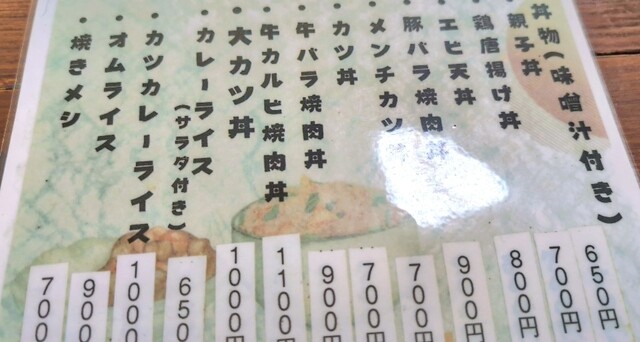 丼物(味噌汁付き)
・親子丼
・鶏唐揚げ丼
・エビ天丼
・豚バラ焼肉
・メンチカツ
・カツ丼
・牛バラ焼肉丼
・牛カルビ焼肉丼
・大カツ丼
・カレーライス
(サラダ付き)
・カツカレーライス
・オムライス
・焼きメシ
650円
700円
800円
900円
700円
700円
900円
1100円
1000円
650
1000
900
700